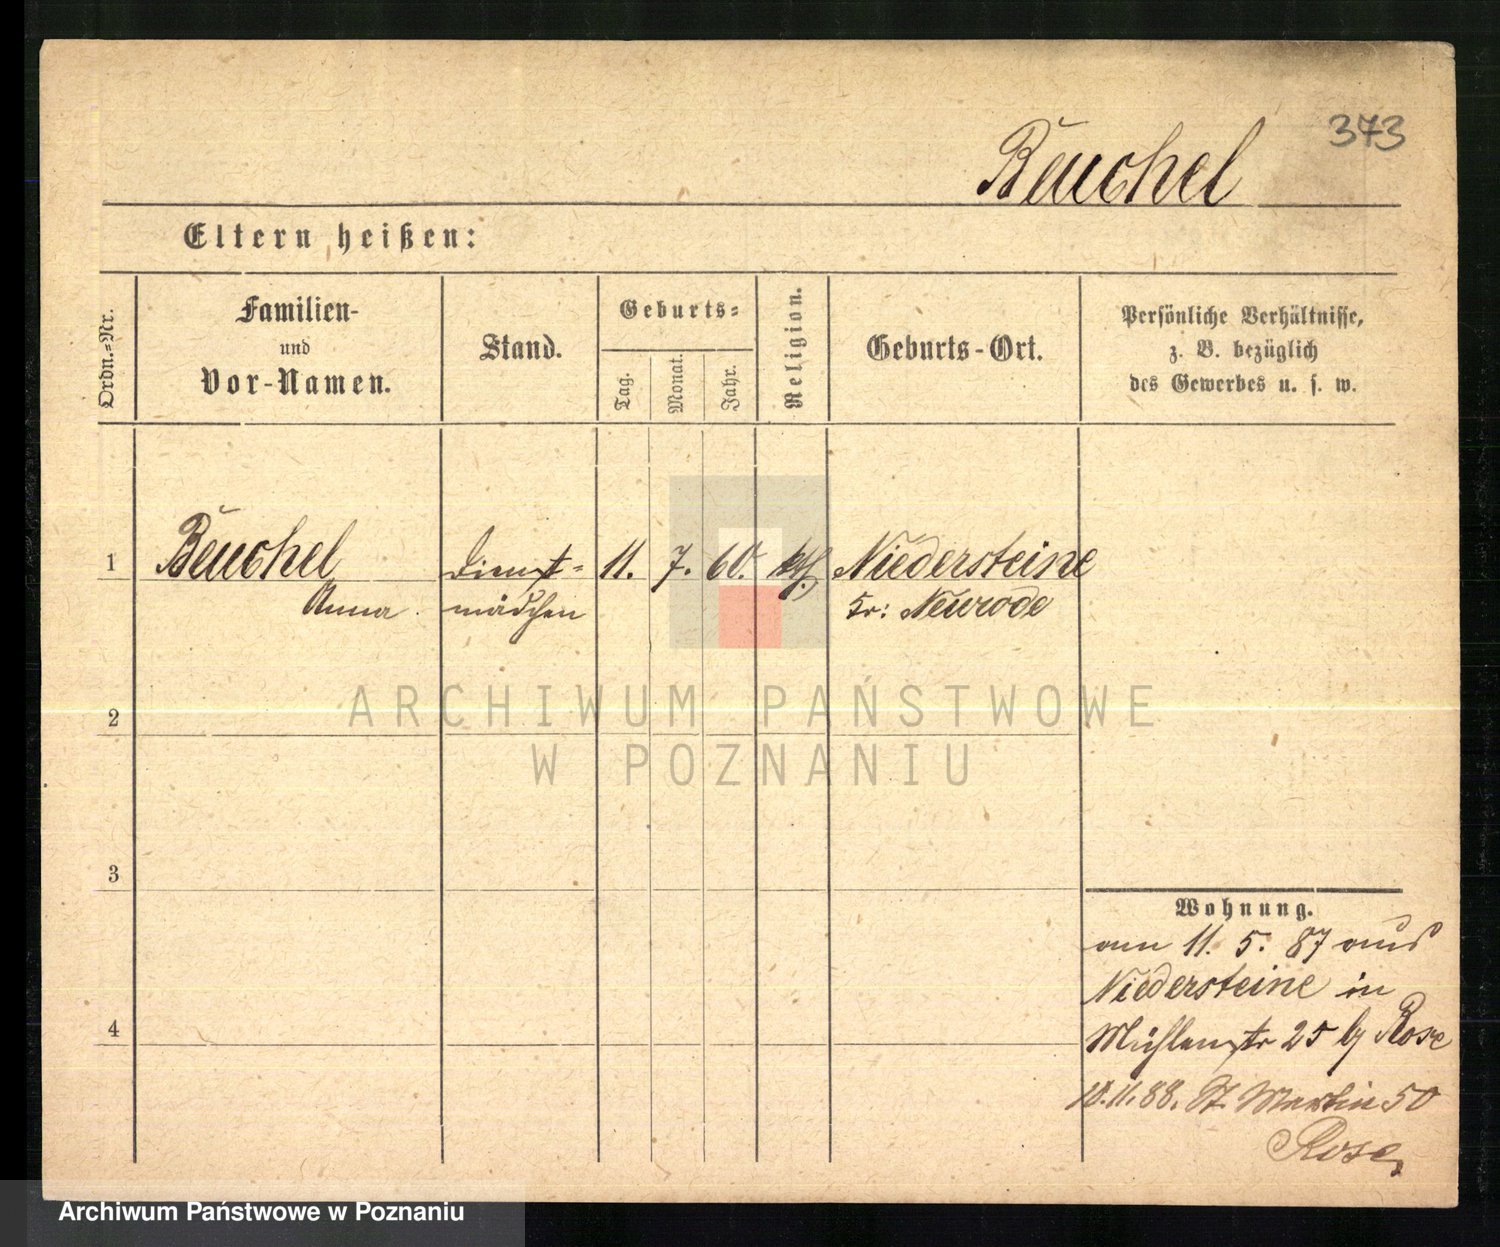 373
Beuchel
Eltern heißen:
Ordn.-Nr.
Familien-
und
Vor-Namen.
Stand.
Geburts-
Tag.
Monat.
Jahr.
Religion.
Geburts-Ort.
Persönliche Verhältnisse,
z. B. bezüglich
des Gewerbes u. s. w.
1 Beuchel Dienst- 11. 7. 60. kth. Niedersteine
Anna mädchen Kr: Neurode
2
3
4
Wohnung.
am 11. 5. 87 aus
Niedersteine in
Mühlenstr 25 b/ Rose
10.11.88. St. Martin 50
Rose
ARCHIWUM PAŃSTWOWE
W POZNANIU
Archiwum Państwowe w Poznaniu